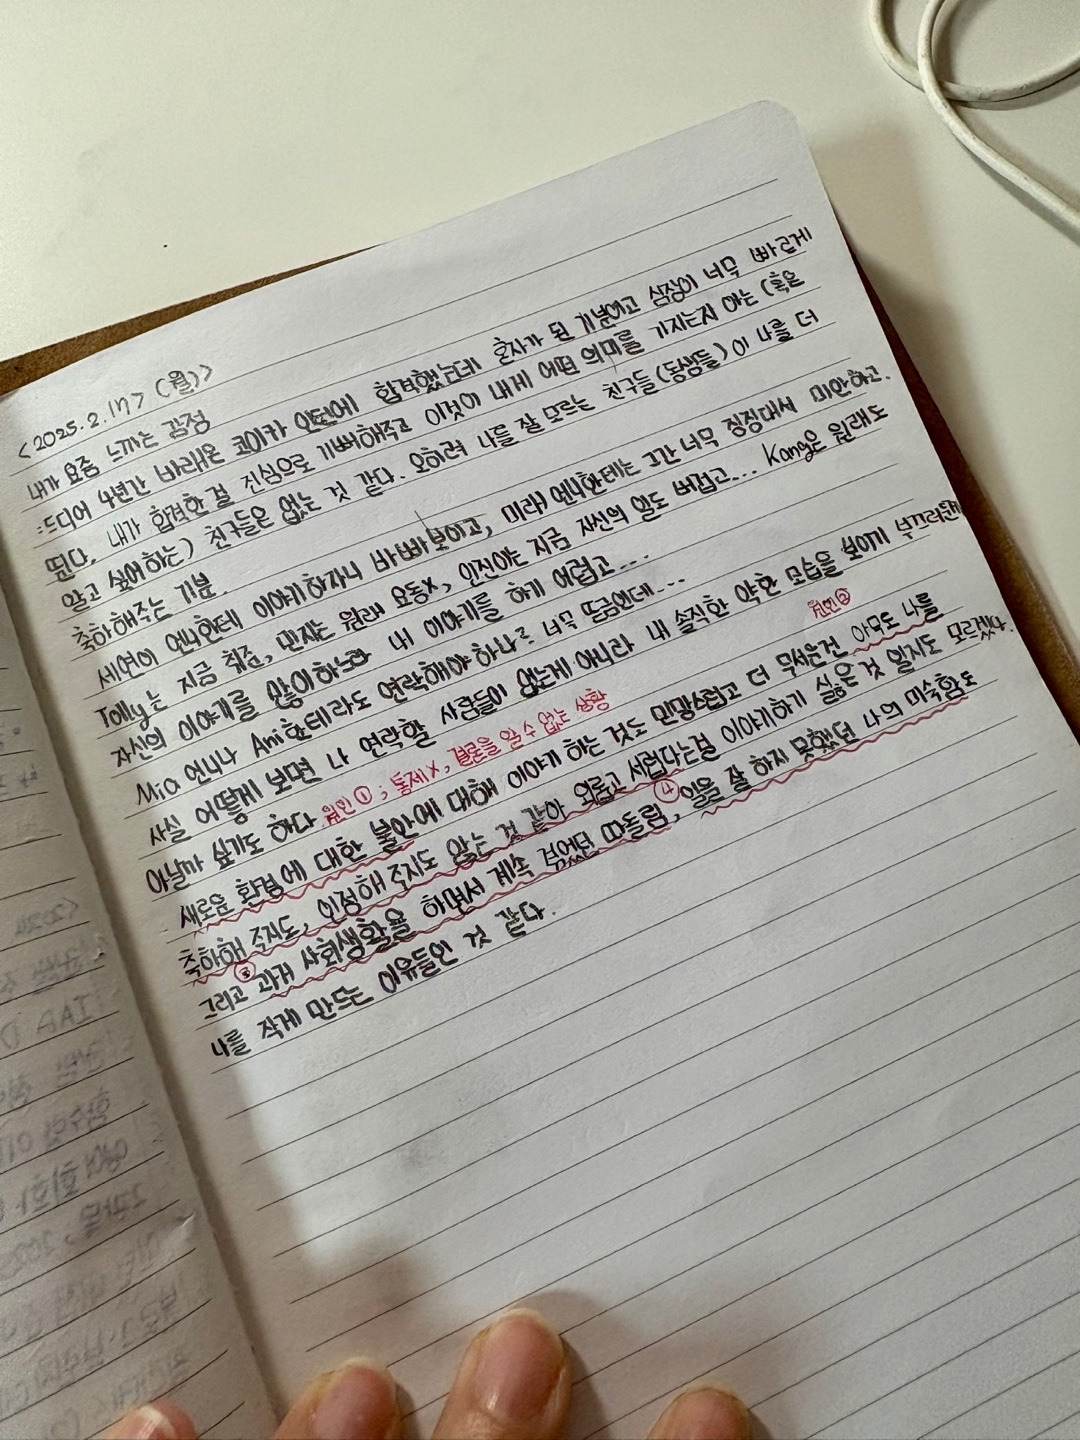 <2025.2.17> (월)>
내가 요즘 느끼는 감정
:드디어 4년간 바래온 코이카 인턴에 합격했는데 혼자가 된 기분이고 심장이 너무 빠르게
뛴다. 내가 합격한 걸 진심으로 기뻐해주고 이것이 내게 어떤 의미를 가지는지 아는 (혹은
알고 싶어하는) 친구들은 없는 것 같다. 오히려 나를 잘 모르는 친구들(동생들)이 나를 더
축하해주는 기분.
세연이 언니한테 이야기하자니 바빠보이고, 미래 언니한테는 그간 너무 징징대서 미안하고.
Tolly는 지금 취준, 민지는 원래 요동x, 인진이는 지금 자신의 일도 버겁고... Kang은 원래도
자신의 이야기를 많이 하느라 내 이야기를 하기 어렵고...
Mia 언니나 Ani한테라도 연락해야 하나? 너무 뜬금인데...
사실 어떻게 보면 나 연락할 사람들이 없는게 아니라 내 솔직한 약한 모습을 보이기 부끄러운게
아닐까 싶기도 하다. 원인①; 통제x, 결론을 알 수 없는 상황
원인②
새로운 환경에 대한 불안에 대해 이야기 하는 것도 민망스럽고 더 무서운건 아무도 나를
축하해 주지도, 인정해 주지도 않는 것 같아 외롭고 서럽다는걸 이야기하기 싫은 것 일지도 모르겠다.
그리고 ③과거 사회생활을 하면서 계속 겪었던 따돌림, ④일을 잘 하지 못했던 나의 미숙함도
나를 작게 만드는 이유들인 것 같다.